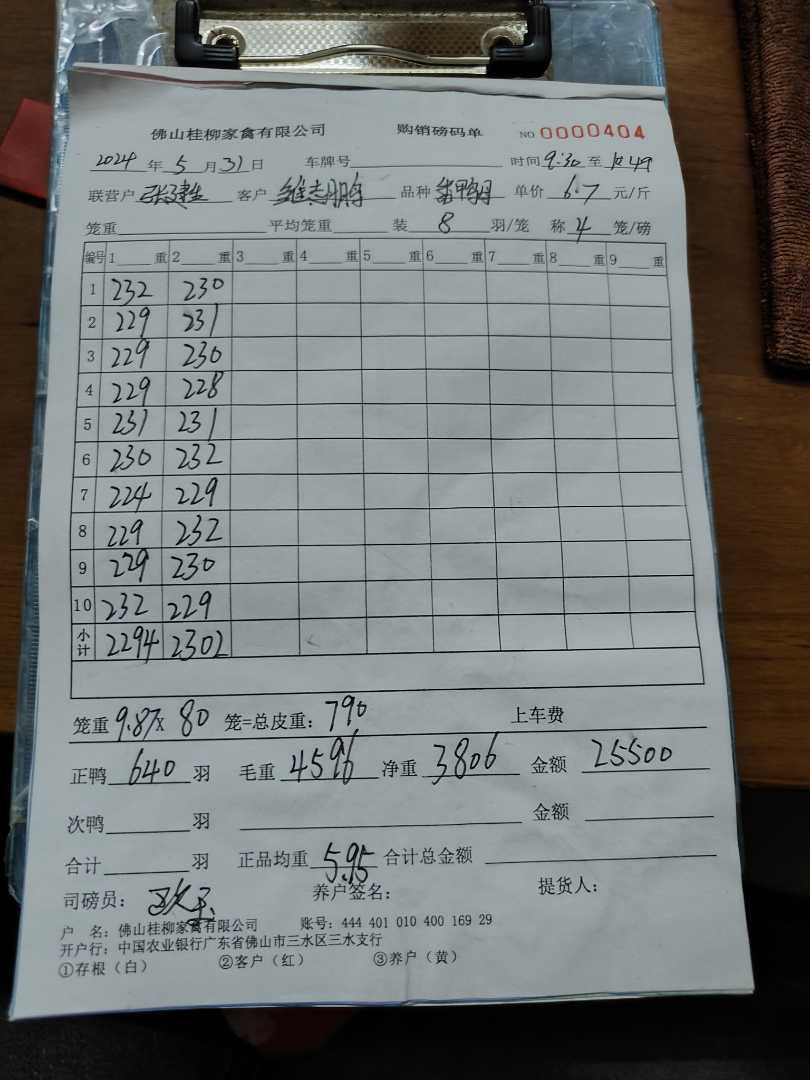 佛山桂柳家禽有限公司 购销磅码单 NO 0000404
2024 年 5 月 31 日 车牌号 时间 9:30 至 10:49
联营户 客户 品种 单价 6.7 元/斤
笼重 平均笼重 装 8 羽/笼 称 4 笼/磅
编号 1 重 2 重 3 重 4 重 5 重 6 重 7 重 8 重 9 重
1 232 230
2 229 231
3 229 230
4 229 228
5 231 231
6 230 232
7 224 229
8 229 232
9 229 230
10 232 229
小计 2294 2302
笼重 9.87 x 80 笼=总皮重: 790 上车费
正鸭 640 羽 毛重 4596 净重 3806 金额 25500
次鸭 羽 金额
合计 羽 正品均重 5.95 合计总金额
司磅员: 养户签名: 提货人:
户 名: 佛山桂柳家禽有限公司 账号: 444 401 010 400 169 29
开户行: 中国农业银行广东省佛山市三水区三水支行
①存根（白） ②客户（红） ③养户（黄）